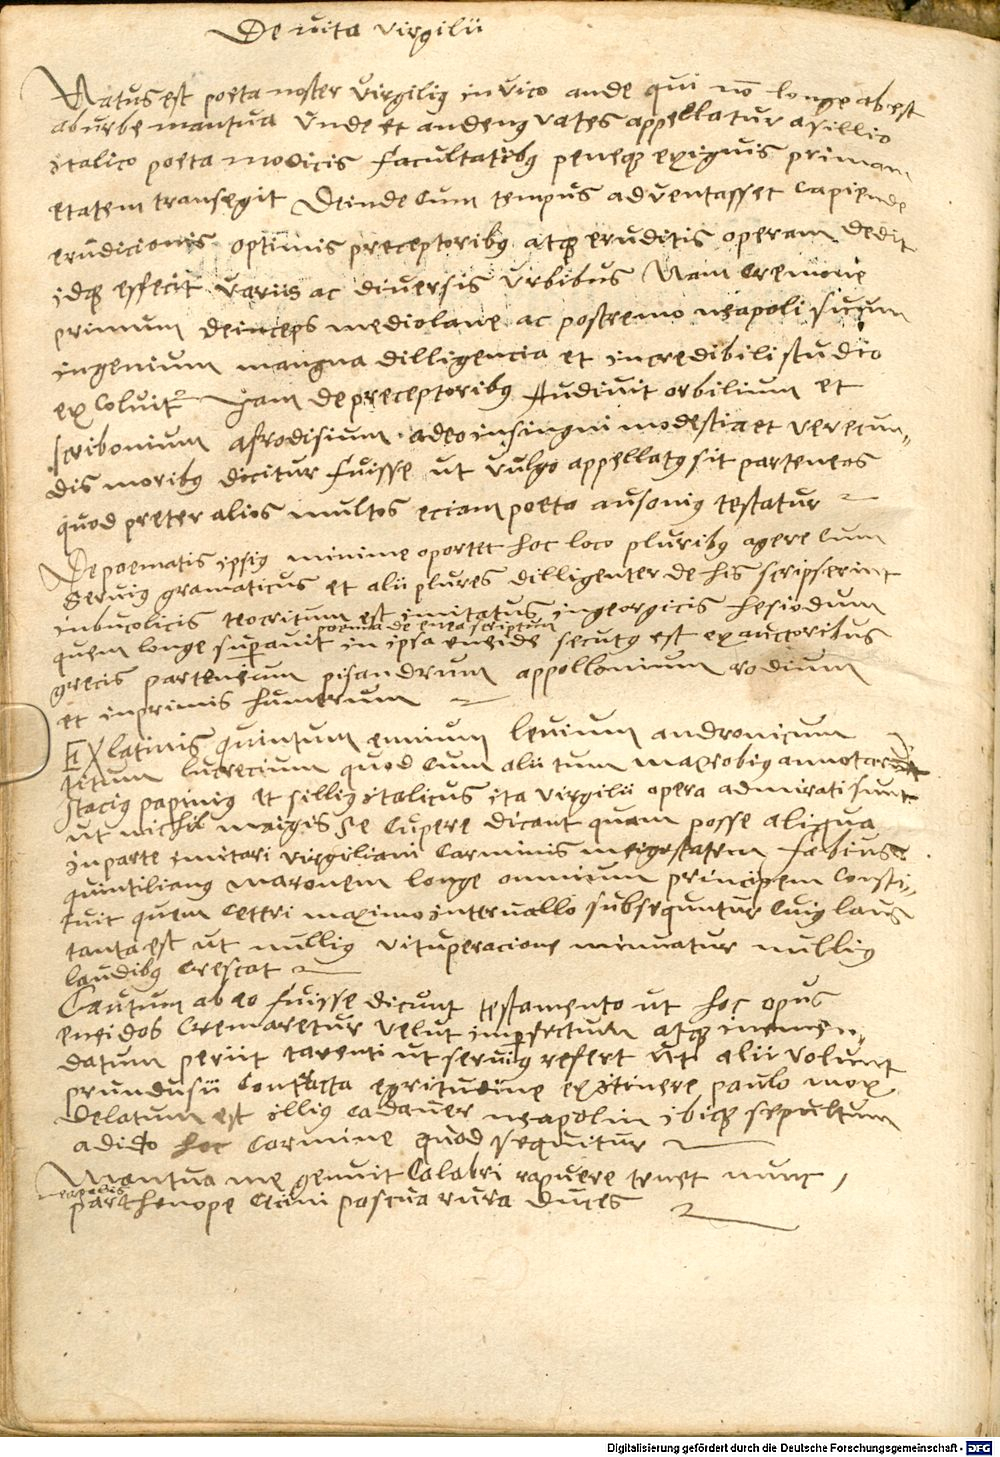 De vita virgilii
Natus est poeta noster virgiliꝯ in vico ande qui nō longe abest
ab urbe mantua Unde et andenꝯ vates appellatur a sillio
italico poeta modicis facultatibꝯ peneqꝫ exiguis primam
etatem transegit Deinde Cum tempus adventasset capiende
erudicionis optimis preceptoribꝯ atqꝫ eruditis operam dedit
idqꝫ effecit variis ac diuersis urbibus Nam Cremone
primum deinceps mediolane ac postremo neapoli suum
ingenium mangna dilligencia et incredibili studio
ex Coluit Jam de preceptoribꝯ Audiuit orbilium et
scribonium afrodisium adeo insingni modestia et verecun„
dis moribꝯ dicitur fuisse ut vulgo appellatꝯ sit parteneos
quod preter alios multos eciam poeta ausoniꝯ testatur
De poematis ipsiꝯ minime oportet hoc loco pluribꝯ agere Cum
Seruiꝯ gramaticus et alii plures dilligenter de his scripserint
in bucolicis teocritum est imitatus in georgicis hesiodum
poema de enea scriptum
quem longe superauit in ipsa eneide secutꝯ est ex auctoribus
grecis parteneum pisandrum appollonium rodium
et inprimis humerum
Ex latinis quintum ennium leuium andronicum
Titum lucrecium quod Cum alii tum maxrobiꝯ annotarunt
Staciꝯ papiniꝯ et silliꝯ italicus ita virgilii opera admirati sunt
ut nichil maigis se Cupere dicant quam posse aliqua
in parte imitari virgiliani Carminis maigestatem fabius
quintilianꝯ maronem longe omnium principem Consti„
tuit quem Ceteri maximo interuallo subsequntur Cuiꝯ laus
tanta est ut nulliꝯ vituperacione minuatur nulliꝯ
laudibꝯ Crescat
Cautum ab eo fuisse dicunt testamento ut hoc opus
eneidos Cremaretur velut imperfectum atqꝫ inemen„
datum periit tarenti ut seruiꝯ refert ut alii volunt
prundusii Contracta egritudine ex itinere paulo mox
delatum est illiꝯ Cadauer neapolim ibiqꝫ sepultum
adido hoc Carmine quod sequitur
Mantua me genuit Calabri rapuere tenet nunc
neapolis
parthenope Cecini pascua rura duces
Digitalisierung gefördert durch die Deutsche Forschungsgemeinschaft - DFG